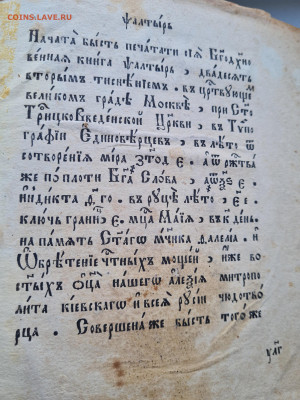 COINS.LAVE.RU
Ѱалтырь
Начата бысть печатати сїѧ Бг҃одхно
венная книга Ѱалтырь, двадесѧть
вторымъ тисненїемъ. въ црⷭ҇твующе
великомъ градѣ Москвѣ, при Ст҃о
Троицко Введенской Церкви, въ Тѵпо
графїи Единовѣрцевъ, въ лѣто ѿ
сотворенїѧ мїра ҂зтод҃ є. а ѿ ржⷭ҇тва
же по плоти Бг҃а Слова, ҂аѡѯ҃ѕ є.
индикта д҃ го. въ руцѣ лѣто, є҃ є.
ключь границ є. мц҃а Маїѧ, въ к҃ день.
на памѧть Ст҃агѡ мч҃ника Ѳалелеа. и
ѡбрѣтенїе чтⷭ҇ныхъ мощей, иже во
ст҃ыхъ ѻц҃а нашегѡ Алеѯїѧ митропо
лита кїевскагѡ и всеѧ русїи чюдотво
рца. Совершена же бысть того же